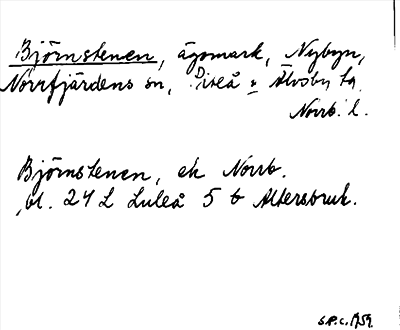 Björnstenen, ägomark, Nybyn,
Norrfjärdens sn, Piteå o Älvsby tg.
Norrb. l.
Björnstenen, ek Norrb.
bl. 24 L Luleå 5 b Altersbruk.
S.P.C. 1959